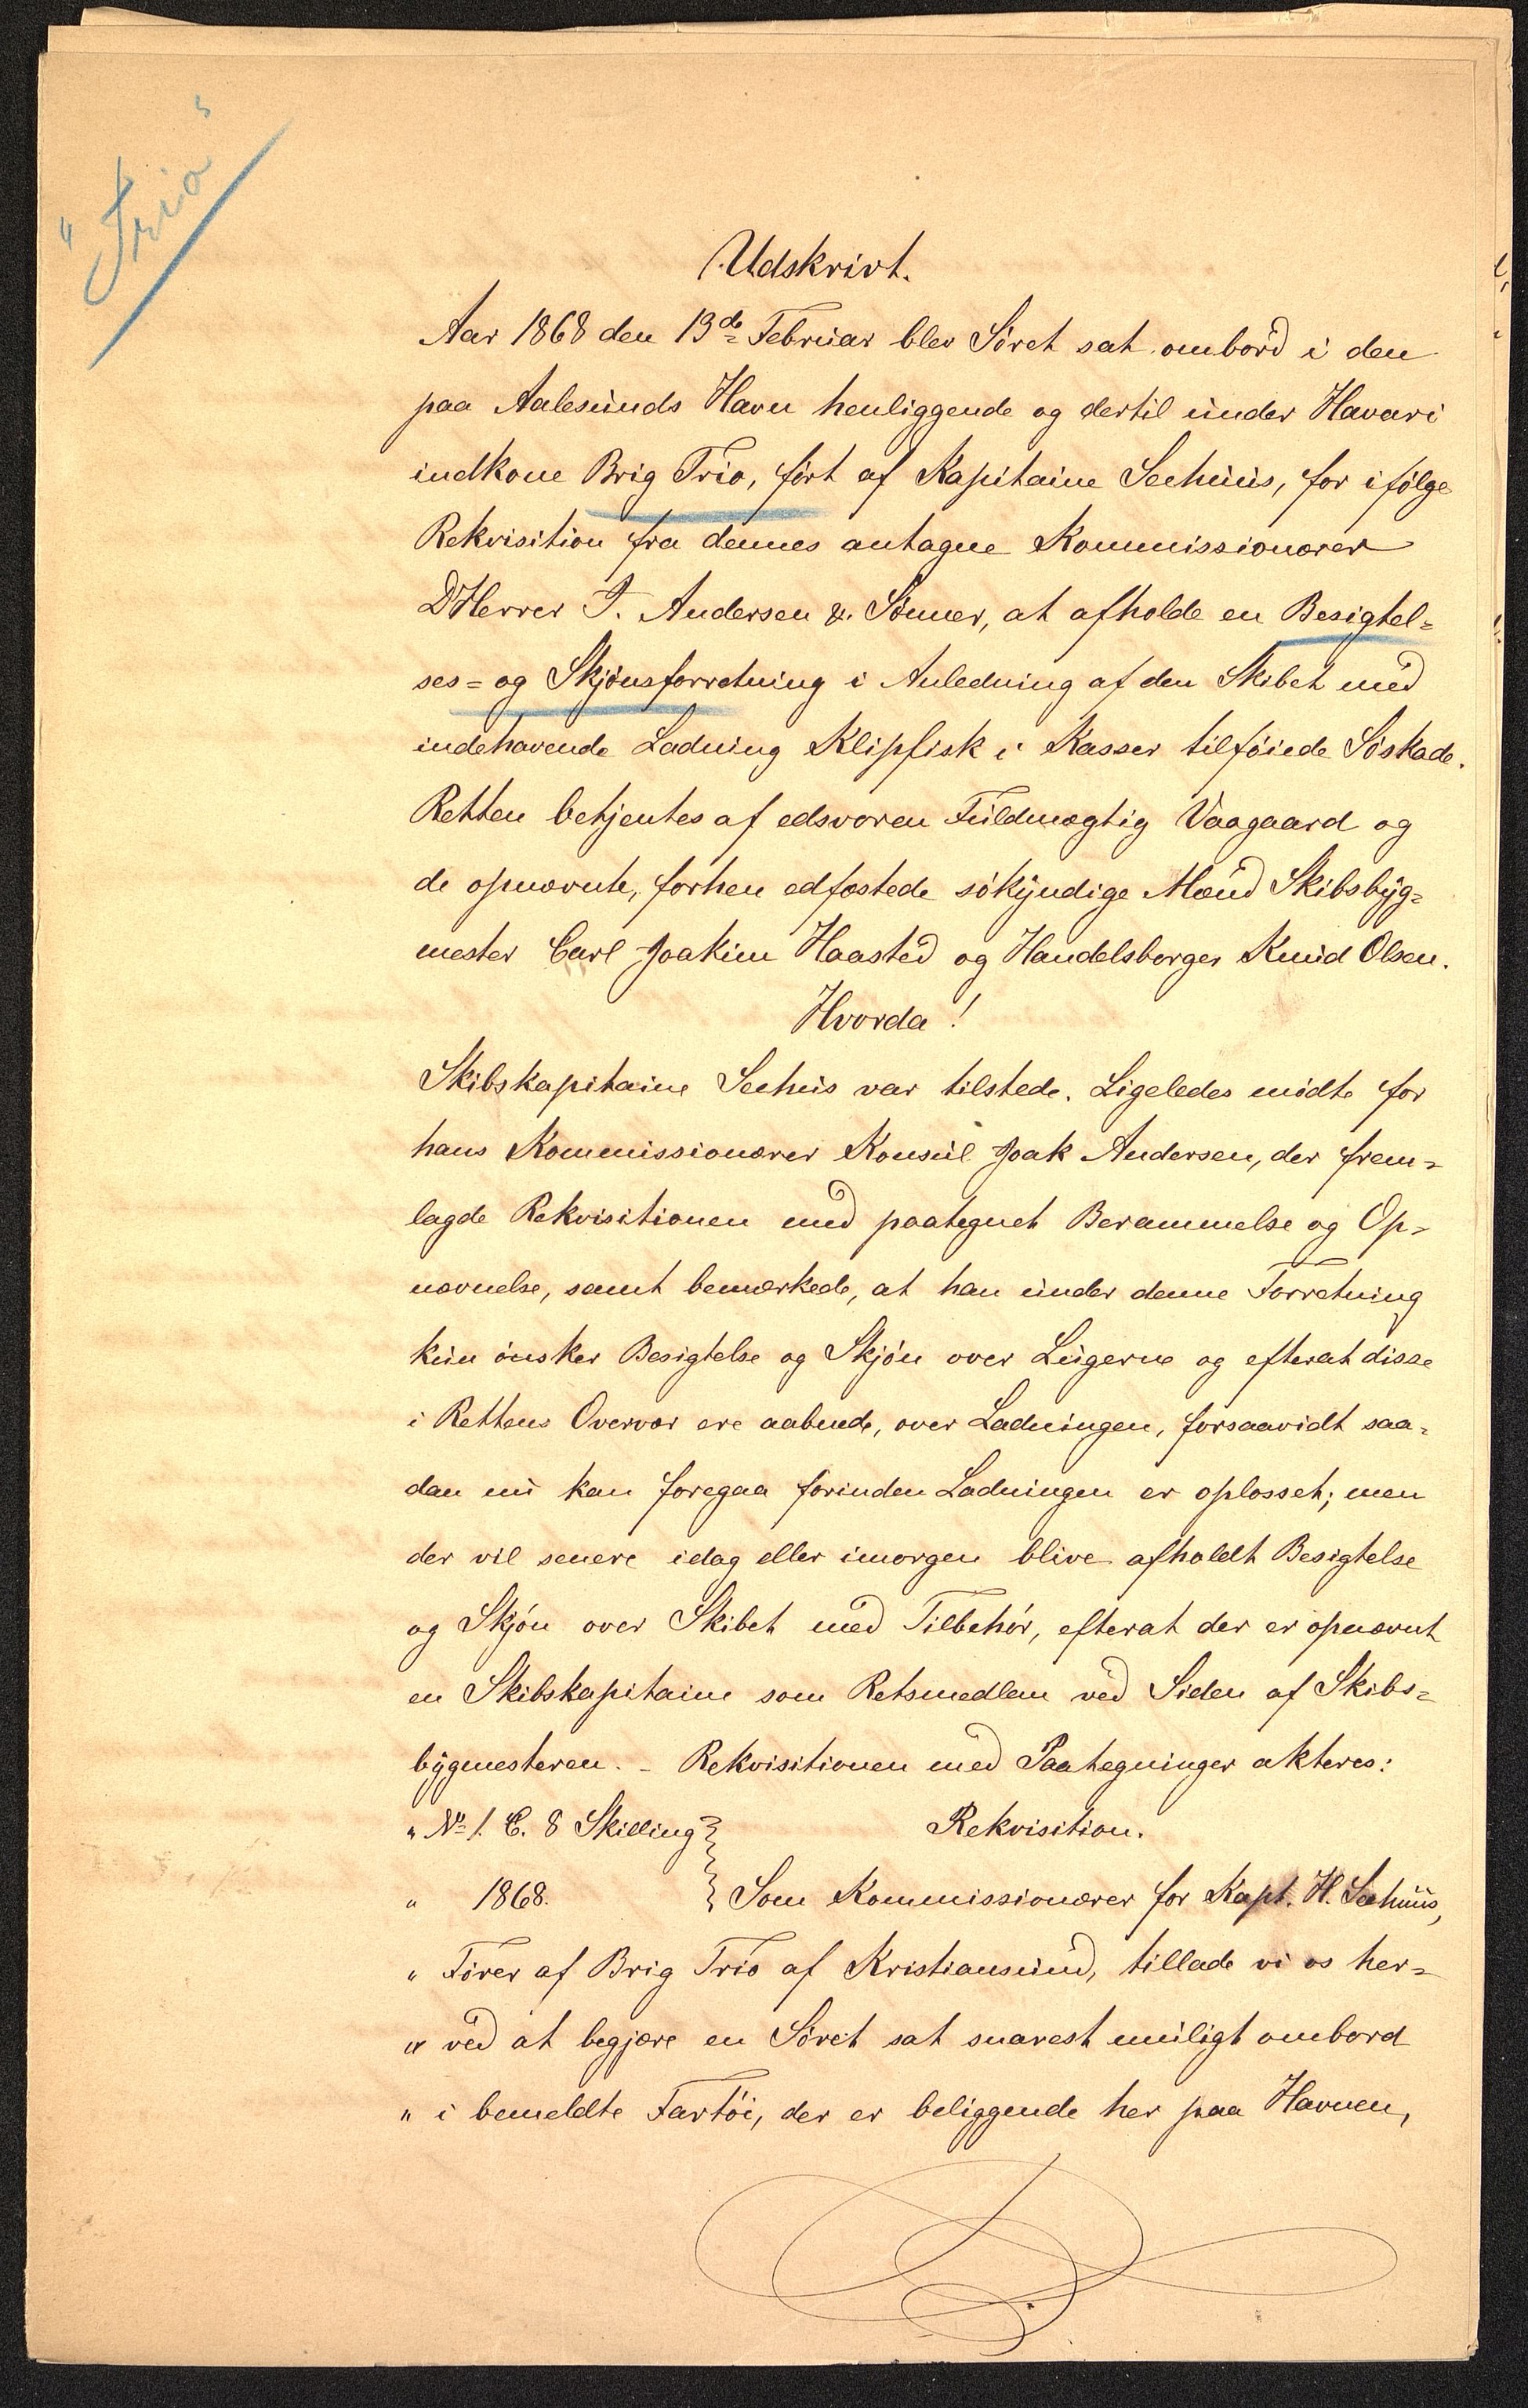 "Trio"
Udskrivt.
Aar 1868 den 13de Februar blev Söret sat ombord i den
paa Aalesunds Havn henliggende og dertil under Havari
indkone Brig Trio, fört af Kapitaine Seehuus, for ifölge
Rekvisition fra dennes antagne Kommissionærer
DHerrer J. Andersen & Sönner, at afholde en Besigtel=
ses= og Skjönsforretning i Anledning af den Skibet med
indehavende Ladning Klipfisk i Kasser tilföiede Söskade.
Retten betjentes af edsvoren Fuldmægtig Vaagaard og
de opnævnte, forhen edfæstede sökyndige Mænd Skibsbyg=
mester Carl Joakim Haasted og Handelsborger Knud Olsen.
Hvorda!
Skibskapitaine Seehus var tilstede. Ligeledes mödte for
hans Kommissionærer Konsul Joak Andersen, der frem=
lagde Rekvisitionen med paategnet Berammelse og Op=
nævnelse, samt bemærkede, at han under denne Forretning
kun önsker Besigtelse og Skjön over Lugerne og efterat disse
i Rettens Overvær ere aabnede, over Ladningen, forsaavidt saa=
dan nu kan foregaa forinden Ladningen er oplosset; men
der vil senere idag eller imorgen blive afholdt Besigtelse
og Skjön over Skibet med Tilbehör, efterat der er opnævnt
en Skibskapitaine som Retsmedlem ved Siden af Skibs=
bygmesteren. - Rekvisitionen med Paategninger akteres:
" No 1. C. 8 Skilling Rekvisition.
" 1868. Som Kommissionærer for Kapt. H. Seehuus,
" Förer af Brig Trio af Kristiansund, tillade vi os her=
" ved at begjære en Söret sat snarest muligt ombord
" i bemeldte Fartöi, der er beliggende her paa Havnen,